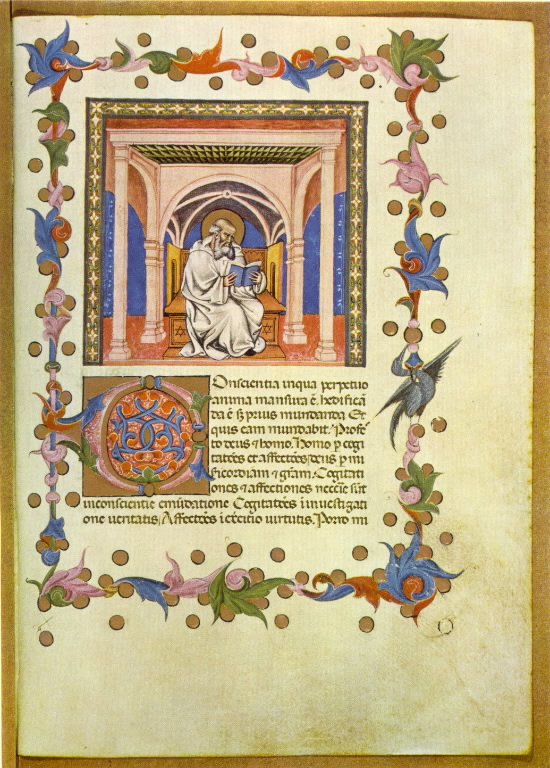 Conscientia in qua perpetuo
anima mansura ē. hedifica
da ē s; prius mundanda Et
quis eam mundabit. Profe
to deus ⁊ homo. Homo p cogi
tatōes et affectōes; deus p mi
sericordiam ⁊ grām. Cogitati
ones ⁊ affectiones necēe sūt
in conscientie emūdatione Cogitatōes i nuestigati
one ueritatis; Affectōes i ex̄citio uirtutis. Porro mi